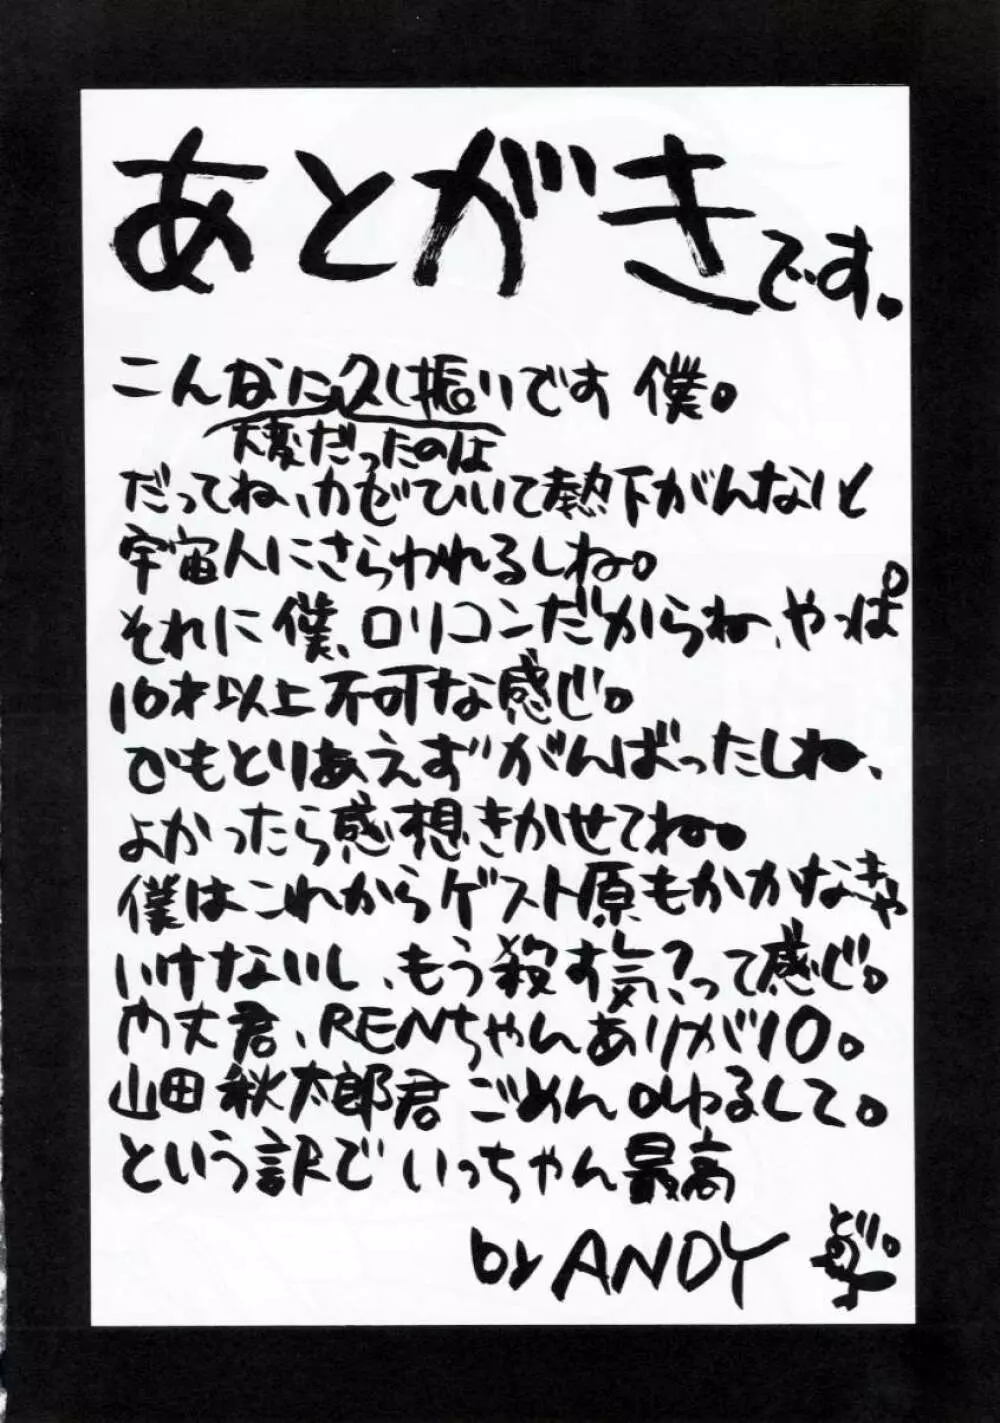 あとがきです。
こんなに久し振りです 僕。
大変だったのは
だってね、カゼひいて熱下がんないと
宇宙人にさらわれるしね。
それに僕、ロリコンだからね、やっぱ
10才以上不可な感じ。
でもとりあえずがんばったしね、
よかったら感想きかせてね。
僕はこれからゲスト原もかかなきゃ
いけないし、もう殺す気?って感じ。
内丈君、RENちゃんありが10。
山田秋太郎君ごめん ゆるして。
という訳で いっちゃん最高
by ANDY
どり。